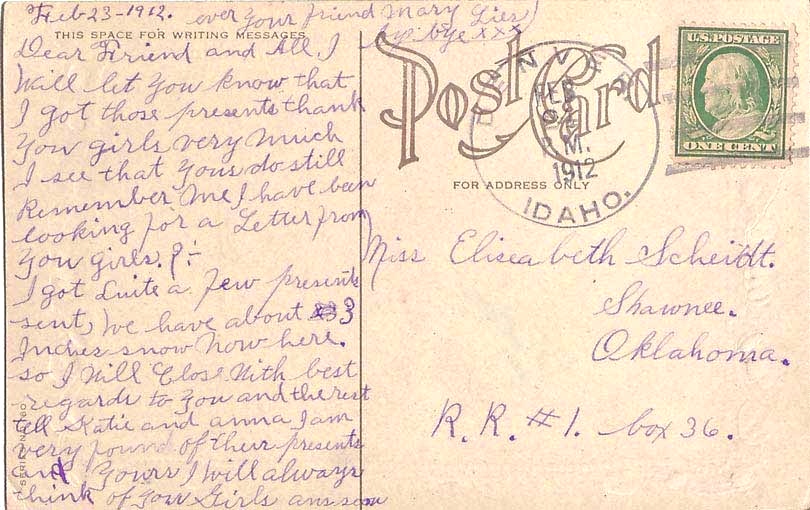 Feb-23-1912. ever your friend Mary Lies
by bye xxx
THIS SPACE FOR WRITING MESSAGES
Dear Friend and All, I
Will let you know that
I got those presents thank
you girls very much
I see that yous do still
Remember Me, I have been
looking for a Letter from
you girls. ?:-
I got Quite a few presents
sent, We have about 3
Inches snow Now here.
so I Will Close With best
regards to you and the rest
tell Katie and anna I am
very pound of their presents
and Yours I Will always
think of you Girls ans soon
SERIES NO.
Post Card
FOR ADDRESS ONLY
DENVER
FEB
M.
1912
IDAHO.
U.S. POSTAGE
ONE CENT
Miss Eliseabeth Scheidt.
Shawnee.
Oklahoma.
R. R. #1. box 36.